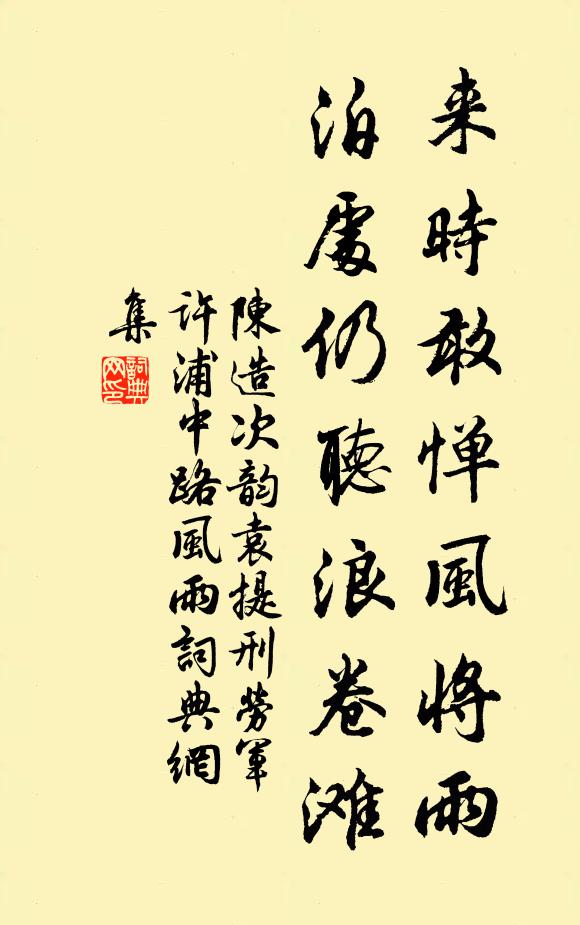 来時敢惮風將雨
泊處仍聽浪卷滩
陳造次韵袁提刑勞軍
許浦中路風雨詞典網
集
詞典
网印